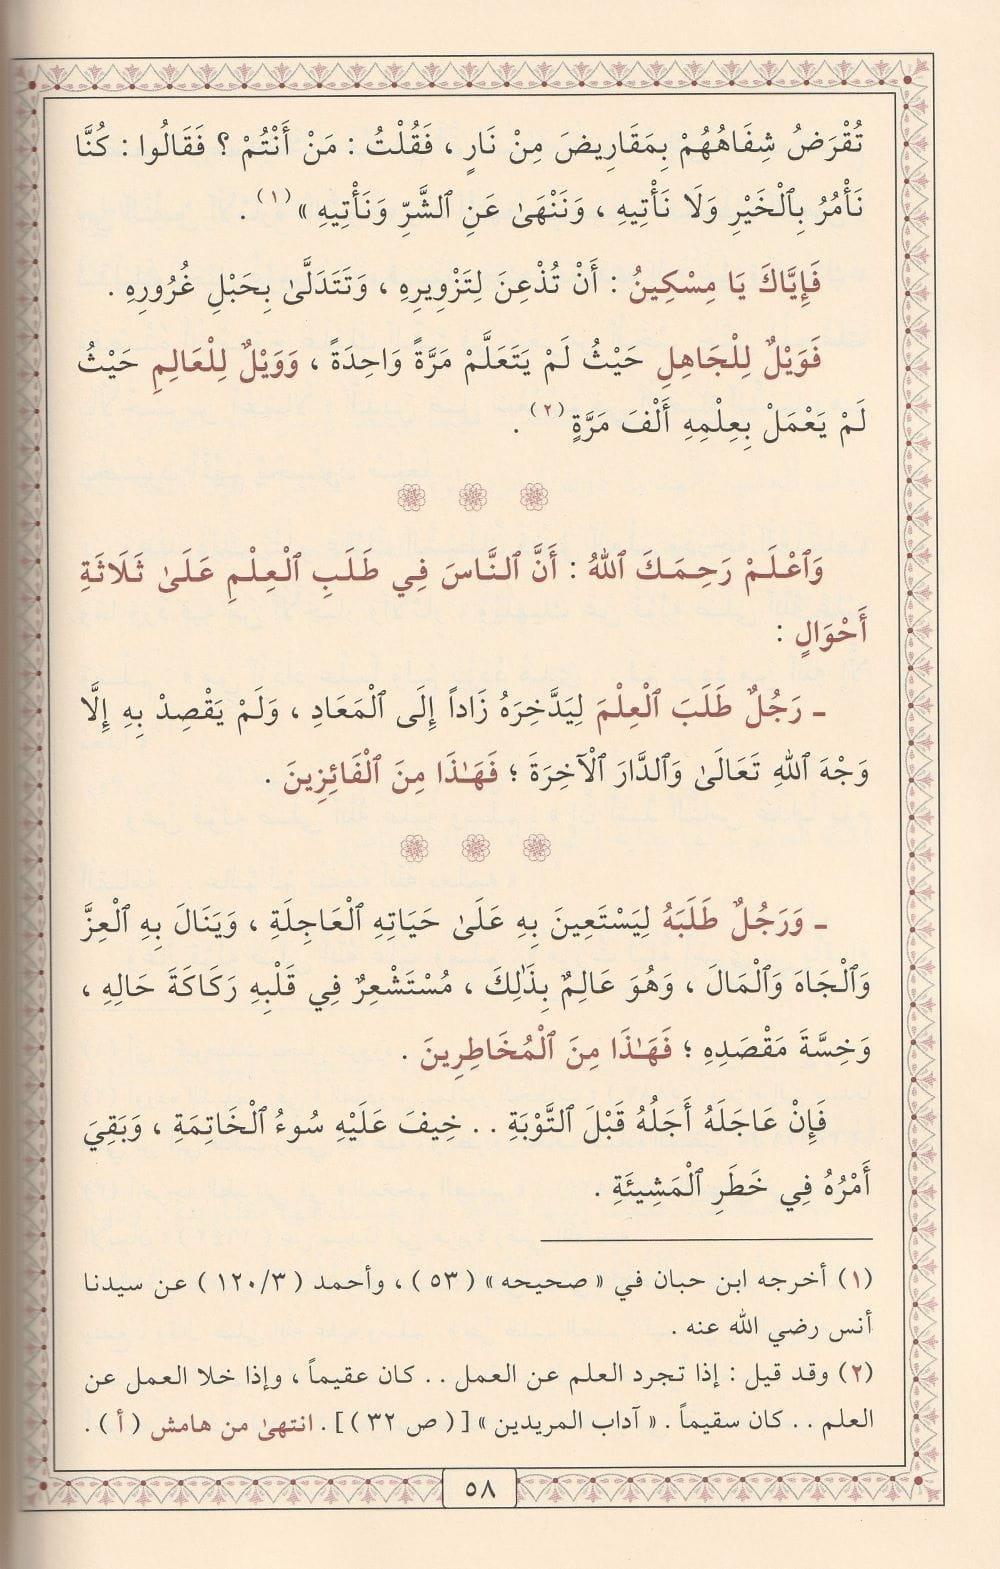 تُقْرَضُ شِفَاهُهُمْ بِمَقَارِيضَ مِنْ نَارٍ ، فَقُلْتُ : مَنْ أَنْتُمْ ؟ فَقَالُوا : كُنَّا
نَأْمُرُ بِٱلْخَيْرِ وَلَا نَأْتِيهِ ، وَنَنْهَىٰ عَنِ ٱلشَّرِّ وَنَأْتِيهِ »(١) .
فَإِيَّاكَ يَا مِسْكِينُ : أَنْ تُذْعِنَ لِتَزْوِيرِهِ ، وَتَتَدَلَّىٰ بِحَبْلِ غُرُورِهِ .
فَوَيْلٌ لِلْجَاهِلِ حَيْثُ لَمْ يَتَعَلَّمْ مَرَّةً وَاحِدَةً ، وَوَيْلٌ لِلْعَالِمِ حَيْثُ
لَمْ يَعْمَلْ بِعِلْمِهِ أَلْفَ مَرَّةٍ(٢) .
وَٱعْلَمْ رَحِمَكَ ٱللهُ : أَنَّ ٱلنَّاسَ فِي طَلَبِ ٱلْعِلْمِ عَلَىٰ ثَلَاثَةِ
أَحْوَالٍ :
ـ رَجُلٌ طَلَبَ ٱلْعِلْمَ لِيَدَّخِرَهُ زَاداً إِلَى ٱلْمَعَادِ ، وَلَمْ يَقْصِدْ بِهِ إِلَّا
وَجْهَ ٱللهِ تَعَالَىٰ وَٱلدَّارَ ٱلْآخِرَةَ ؛ فَهَـٰذَا مِنَ ٱلْفَائِزِينَ .
ـ وَرَجُلٌ طَلَبَهُ لِيَسْتَعِينَ بِهِ عَلَىٰ حَيَاتِهِ ٱلْعَاجِلَةِ ، وَيَنَالَ بِهِ ٱلْعِزَّ
وَٱلْجَاهَ وَٱلْمَالَ ، وَهُوَ عَالِمٌ بِذَٰلِكَ ، مُسْتَشْعِرٌ فِي قَلْبِهِ رَكَاكَةَ حَالِهِ ،
وَخِسَّةَ مَقْصَدِهِ ؛ فَهَـٰذَا مِنَ ٱلْمُخَاطِرِينَ .
فَإِنْ عَاجَلَهُ أَجَلُهُ قَبْلَ ٱلتَّوْبَةِ . . خِيفَ عَلَيْهِ سُوءُ ٱلْخَاتِمَةِ ، وَبَقِيَ
أَمْرُهُ فِي خَطَرِ ٱلْمَشِيئَةِ .
(١) أخرجه ابن حبان في « صحيحه » ( ٥٣ ) ، وأحمد ( ١٢٠/٣ ) عن سيدنا
أنس رضي الله عنه .
(٢) وقد قيل : إذا تجرد العلم عن العمل . . كان عقيماً ، وإذا خلا العمل عن
العلم . . كان سقيماً . « آداب المريدين » [ ( ص ٣٢ ) ] . انتهىٰ من هامش ( أ ) .
٥٨